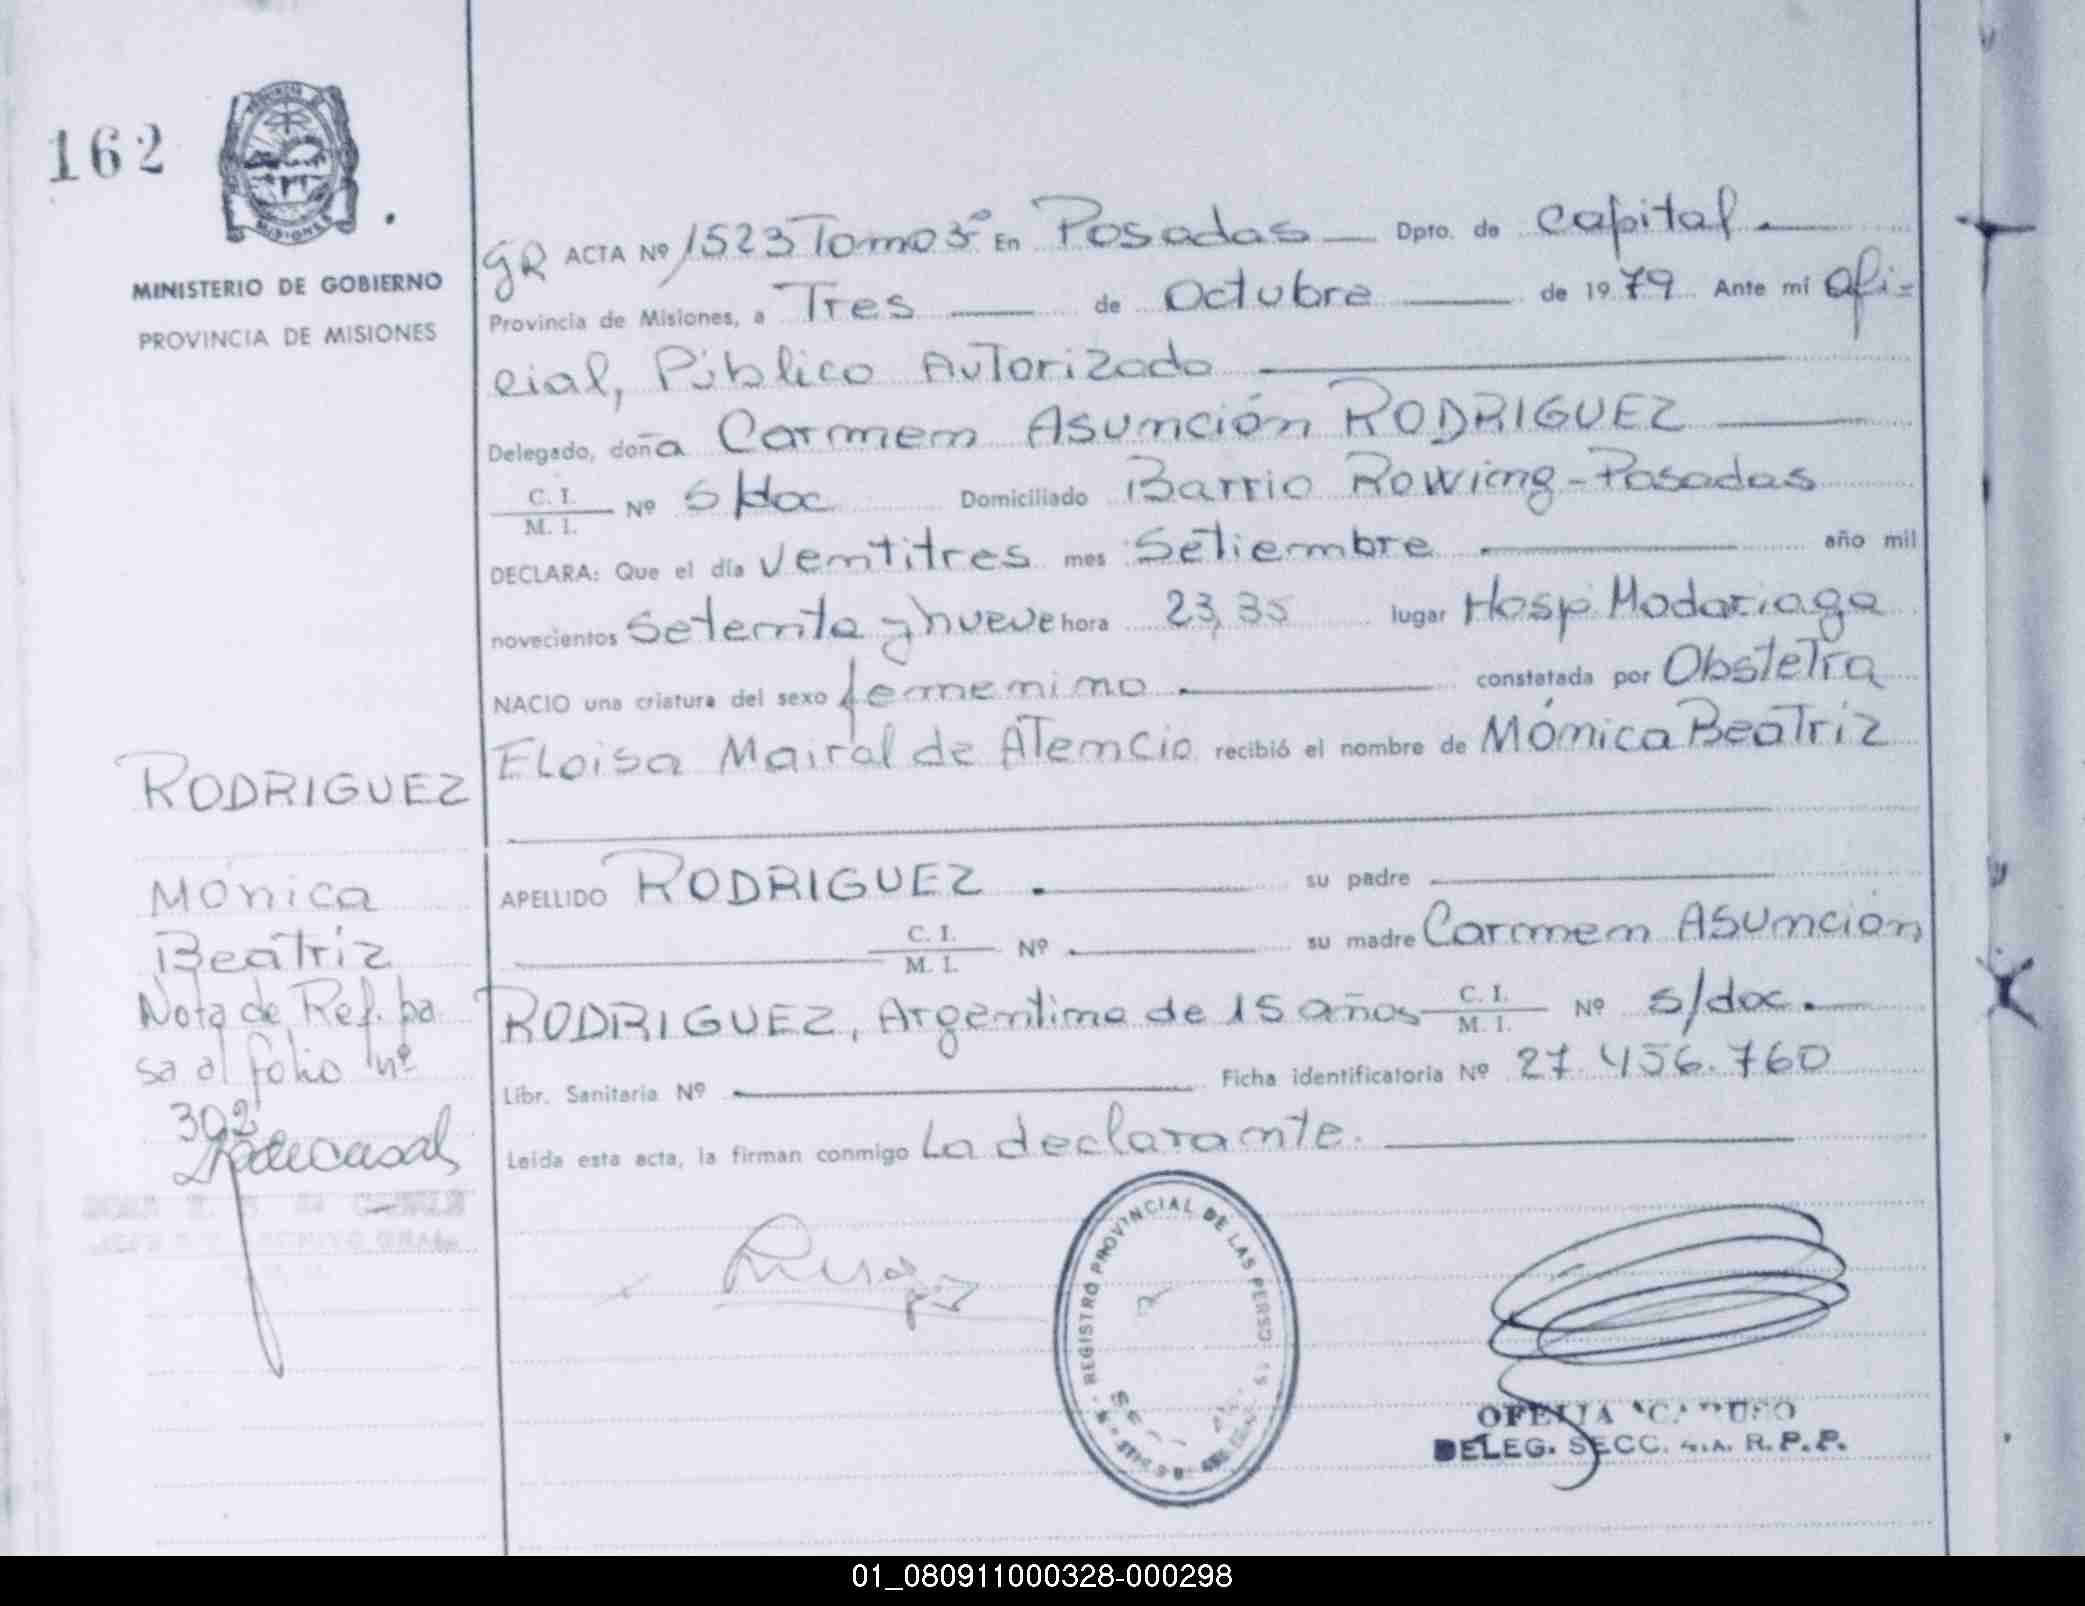 162
MINISTERIO DE GOBIERNO
PROVINCIA DE MISIONES
gR ACTA Nº 1523 Tomo 3º En Posadas Dpto. de Capital
Provincia de Misiones, a Tres de Octubre de 1979 Ante mí Ofi-
cial, Público Autorizado
Delegado, doña Carmen Asunción RODRIGUEZ
C. I.
M. I. Nº s/doc Domiciliado Barrio Rowing - Posadas
DECLARA: Que el día ventitres mes Setiembre año mil
novecientos Setenta y nueve hora 23,35 lugar Hosp. Madariaga
NACIO una criatura del sexo femenino constatada por Obstetra
Eloisa Mairal de Atencio recibió el nombre de Mónica Beatriz
APELLIDO RODRIGUEZ su padre
C. I.
M. I. Nº su madre Carmen Asunción
RODRIGUEZ, Argentina de 15 años C. I.
M. I. Nº s/doc.
Libr. Sanitaria Nº Ficha identificatoria Nº 27.456.760
Leída esta acta, la firman conmigo La declarante.
RODRIGUEZ
Mónica
Beatriz
Nota de Ref. pa
sa al folio nº
302
REGISTRO PROVINCIAL DE LAS
OFELIA
DELEG. SECC. R.P.P.
01_080911000328-000298